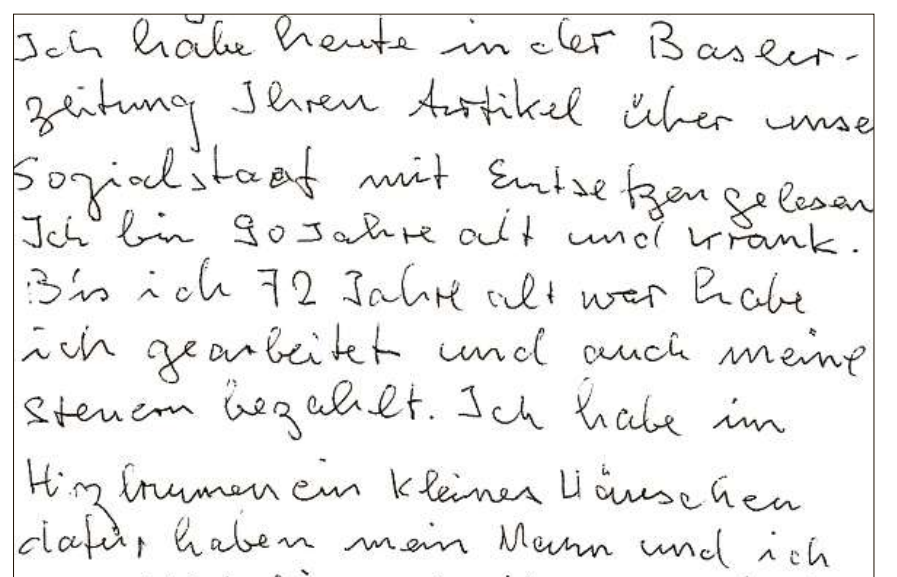 Ich habe heute in der Basler-
zeitung Ihren Artikel über unse
Sozialstaat mit Entsetzen gelesen
Ich bin 90 Jahre alt und krank.
Bis ich 72 Jahre alt war habe
ich gearbeitet und auch meine
Steuern bezahlt. Ich habe im
Hirzbrunnen ein kleines Häuschen
dafür, haben mein Mann und ich